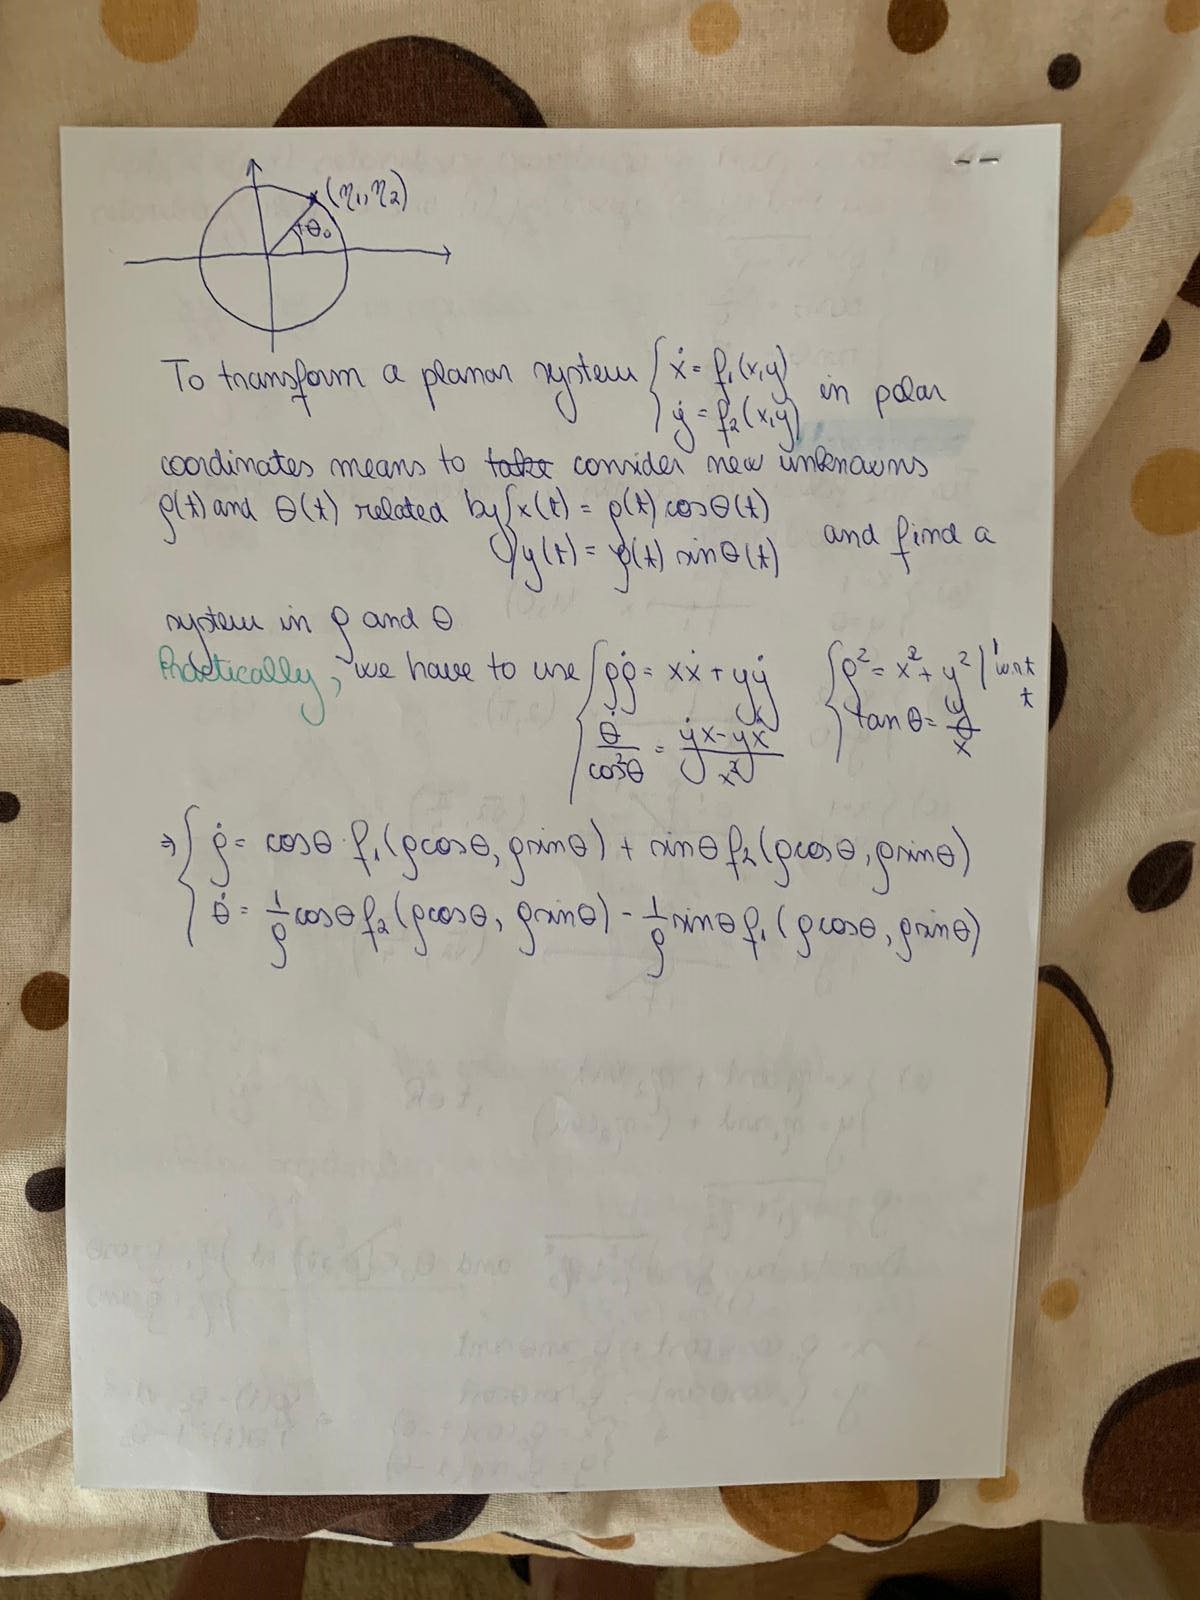 (η1, η2)
θ₀
To transform a planar system { ẋ = f₁(x,y)
ẏ = f₂(x,y) in polar
coordinates means to take consider new unknowns
ρ(t) and θ(t) related by { x(t) = ρ(t) cosθ(t)
y(t) = ρ(t) sinθ(t) and find a
system in ρ and θ
Practically, we have to use { ρρ̇ = xẋ + yẏ { ρ² = x² + y² |' w.r.t t
θ̇/cos²θ = (ẏx - yẋ)/x² tan θ = y/x
⇒ { ρ̇ = cosθ · f₁(ρcosθ, ρsinθ) + sinθ f₂(ρcosθ, ρsinθ)
θ̇ = 1/ρ cosθ f₂(ρcosθ, ρsinθ) - 1/ρ sinθ f₁(ρcosθ, ρsinθ)